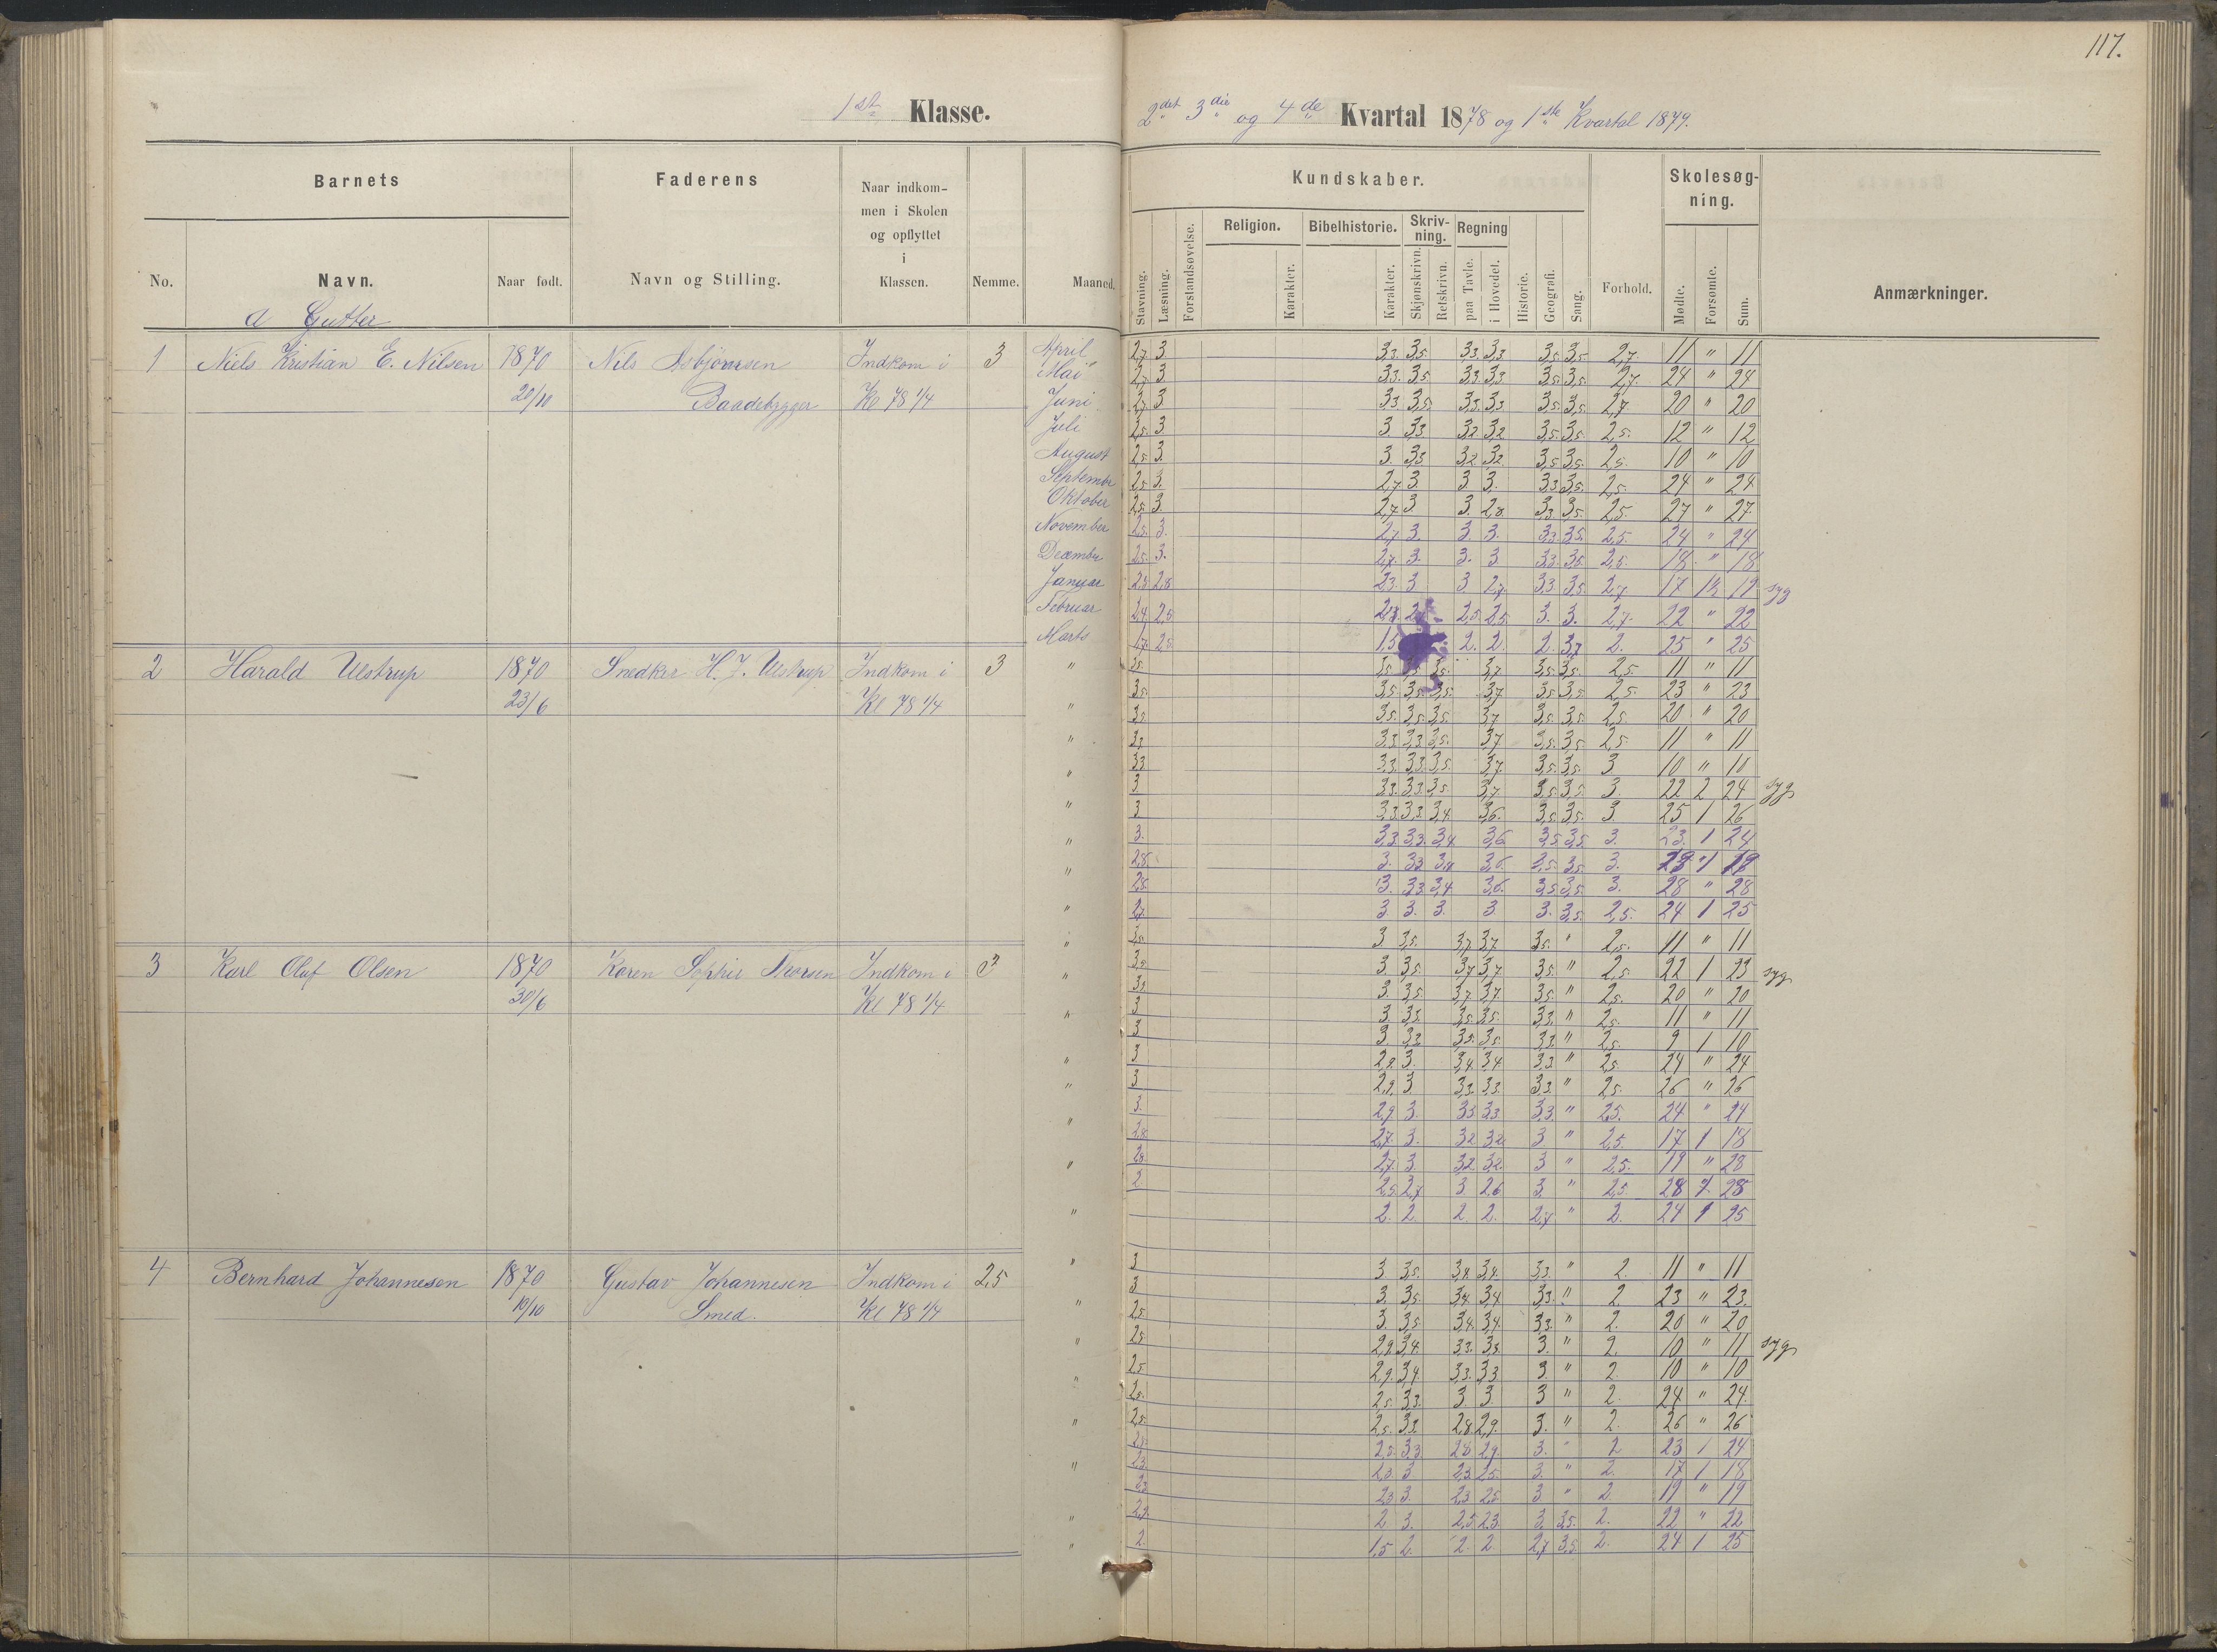 117.
1ste Klasse.
2det 3die og 4de Kvartal 1878 og 1ste Kvartal 1879.
Barnets
Faderens
Naar indkommen i Skolen og opflyttet i Klassen.
Nemme.
Maaned.
Kundskaber.
Skolesøgning.
No.
Navn.
Naar født.
Navn og Stilling.
Stavning.
Læsning.
Forstandsøvelse.
Religion.
Karakter.
Bibelhistorie.
Karakter.
Skrivning.
Skjønskrivn.
Retskrivn.
Regning
paa Tavle.
i Hovedet.
Historie.
Geografi.
Sang.
Forhold.
Mødte.
Forsømte.
Sum.
Anmærkninger.
a Gutter
1 Niels Kristian E. Nilsen 1870 Nils Asbjørnsen Indkom i 3
20/10 Baadebygger Kl 78 1/4
April 2,7 3 3,3 3,5 3,3 3,3 3,5 3,5 2,7 11 " 11
Mai 2,7 3 3,3 3,5 3,3 3,3 3,5 3,5 2,7 24 " 24
Juni 2,7 3 3,3 3,5 3,3 3,3 3,5 3,5 2,7 20 " 20
Juli 2,5 3 3 3,3 3,2 3,2 3,5 3,5 2,5 12 " 12
August 2,5 3 3 3,3 3,2 3,2 3,5 3,5 2,5 10 " 10
September 2,5 3 2,7 3 3 3 3,3 3,5 2,5 24 " 24
Oktober 2,5 3 2,7 3 3 2,8 3,3 3,5 2,5 27 " 27
November 2,5 3 2,7 3 3 3 3,3 3,5 2,5 24 " 24
December 2,5 3 2,7 3 3 3 3,3 3,5 2,5 18 " 18
Januar 2,5 2,8 2,3 3 3 2,7 3,3 3,5 2,7 17 19 syg
Februar 2,4 2,5 2,5 2,5 3 3 2,7 22 " 22
Marts 1,7 2,5 1,5 2 2 2 3,7 2 25 " 25
2 Harald Ulstrup 1870 Snedker H. J. Ulstrup Indkom i 3
23/6 Kl 78 1/4
3,5 3,5 3,5 3,5 3,7 3,5 3,5 2,5 11 " 11
3,5 3,5 3,5 3,5 3,7 3,5 3,5 2,5 23 " 23
3,5 3,5 3,5 3,5 3,7 3,5 3,5 2,5 20 " 20
3,3 3,3 3,3 3,5 3,7 3,5 3,5 2,5 11 " 11
3,3 3,3 3,3 3,5 3,7 3,5 3,5 3 10 " 10
3 3,3 3,3 3,5 3,7 3,5 3,5 3 22 2 24 syg
3 3,3 3,3 3,4 3,6 3,5 3,5 3 25 1 26
3 3,3 3,3 3,4 3,6 3,5 3,5 3 23 1 24
2,8 3 3,3 3,4 3,6 3,5 3,5 3
2,8 3 3,3 3,4 3,6 3,5 3,5 3 28 " 28
2,7 3 3 3 3 3 3,5 2,5 24 1 25
3 Karl Oluf Olsen 1870 Karen Sophie Thorsen Indkom i 3
30/6 Kl 78 1/4
3,5 3 3,5 3,7 3,7 3,5 " 2,5 11 " 11
3,5 3 3,5 3,7 3,7 3,5 " 2,5 22 1 23 syg
3,5 3 3,5 3,7 3,7 3,5 " 2,5 20 " 20
3 3 3,3 3,5 3,5 3,3 " 2,5 11 " 11
3 3 3,3 3,5 3,5 3,3 " 2,5 9 1 10
3 2,9 3 3,4 3,4 3,3 " 2,5 24 " 24
3 2,9 3 3,3 3,3 3,3 " 2,5 26 " 26
3 2,9 3 3,3 3,3 3,3 " 2,5 24 " 24
2,8 2,7 3 3,2 3,2 3 " 2,5 17 1 18
2,8 2,7 3 3,2 3,2 3 " 2,5 19 " 28
2 2,5 2,7 3 2,6 3 " 2,5 28 28
2 2 2 2 2,7 " 2 24 1 25
4 Bernhard Johannesen 1870 Gustav Johannesen Indkom i 2,5
10/10 Smed. Kl 78 1/4
3 3 3,5 3,4 3,4 3,3 " 2 11 " 11
3 3 3,5 3,4 3,4 3,3 " 2 23 " 23
2,5 3 3,5 3,4 3,4 3,3 " 2 20 " 20
2,5 2,9 3,4 3,3 3,3 3 " 2 10 " 11 syg
2,5 2,9 3,4 3,3 3,3 3 " 2 10 " 10
2,5 2,5 3,3 3 3 3 " 2 24 " 24
2,5 2,5 3,3 2,8 2,9 3 " 2 26 " 26
2,5 2,5 3,3 2,8 2,9 3 " 2 23 1 24
2,3 2,3 3 2,3 2,5 3 " 2 17 1 18
2,3 2,3 3 2,3 2,5 3 " 2 19 " 19
2,2 2 3 2,5 2,3 3 3,5 2 22 " 22
2 1,5 2 2 2 2,7 3,5 2 24 1 25